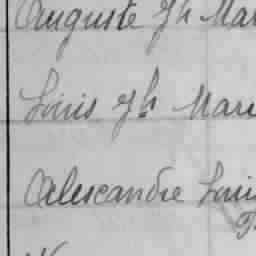 Auguste Jh Mar
Louis Jh Mari
Alexcandre Loui